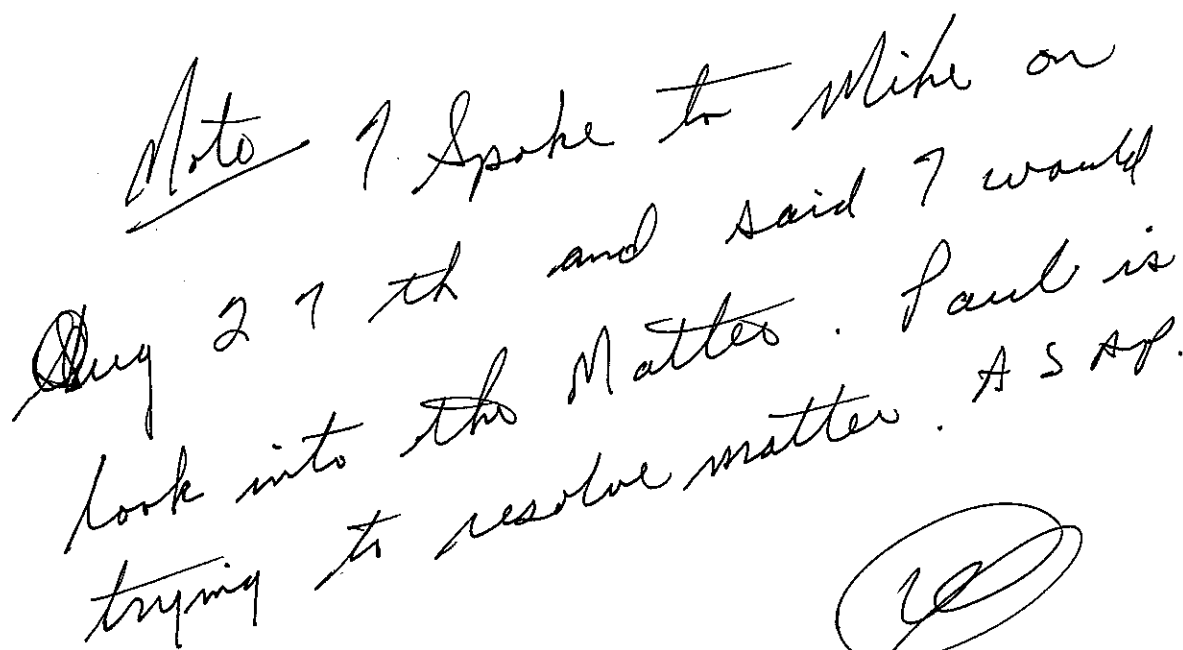 Note I Spoke to Mike on
Aug 27th and said I would
look into the Matter. Paul is
trying to resolve matter. ASAP.